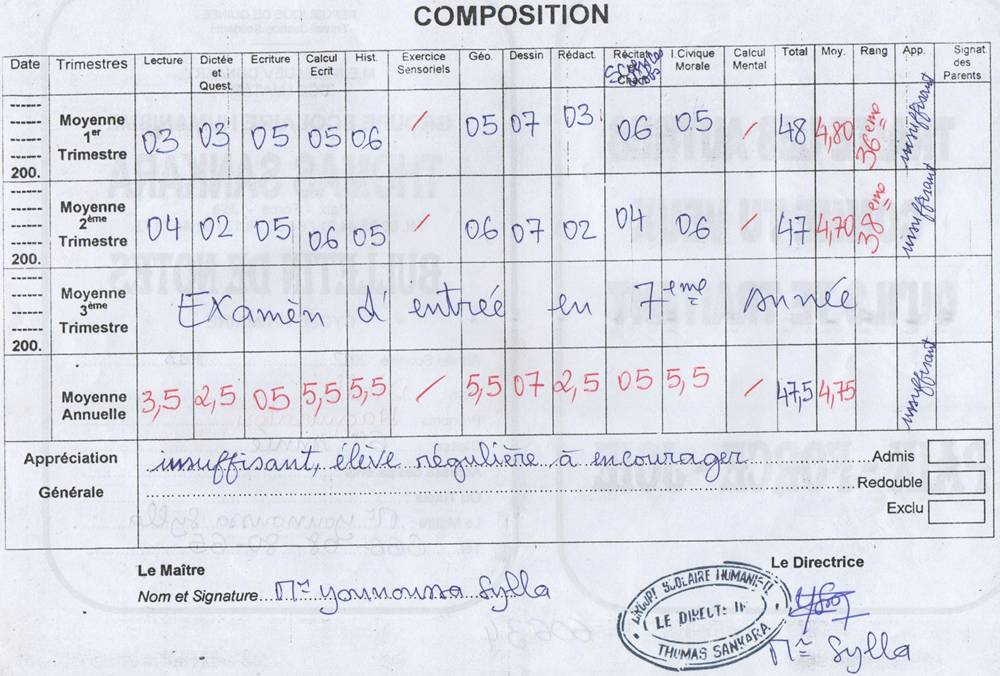 COMPOSITION
Date Trimestres Lecture Dictée et Quest. Ecriture Calcul Ecrit Hist. Exercice Sensoriels Géo. Dessin Rédact. Récitat I Civique Morale Calcul Mental Total Moy. Rang App. Signat. des Parents
Moyenne 1er Trimestre 200. 03 03 05 05 06 / 05 07 03 06 05 / 48 4,80 36ème insuffisant
Moyenne 2ème Trimestre 200. 04 02 05 06 05 / 06 07 02 04 06 / 47 4,70 38ème insuffisant
Moyenne 3ème Trimestre 200. Examèn d'entreé en 7ème année
Moyenne Annuelle 3,5 2,5 05 5,5 5,5 / 5,5 07 2,5 05 5,5 / 47,5 4,75 insuffisant
Appréciation Générale insuffisant, élève régulière à encourager
Admis
Redouble
Exclu
Le Maître
Nom et Signature... Mr younoussa Sylla
Le Directrice
GROUPE SCOLAIRE HUMANIS
LE DIRECT
THOMAS SANKARA
Mr Sylla